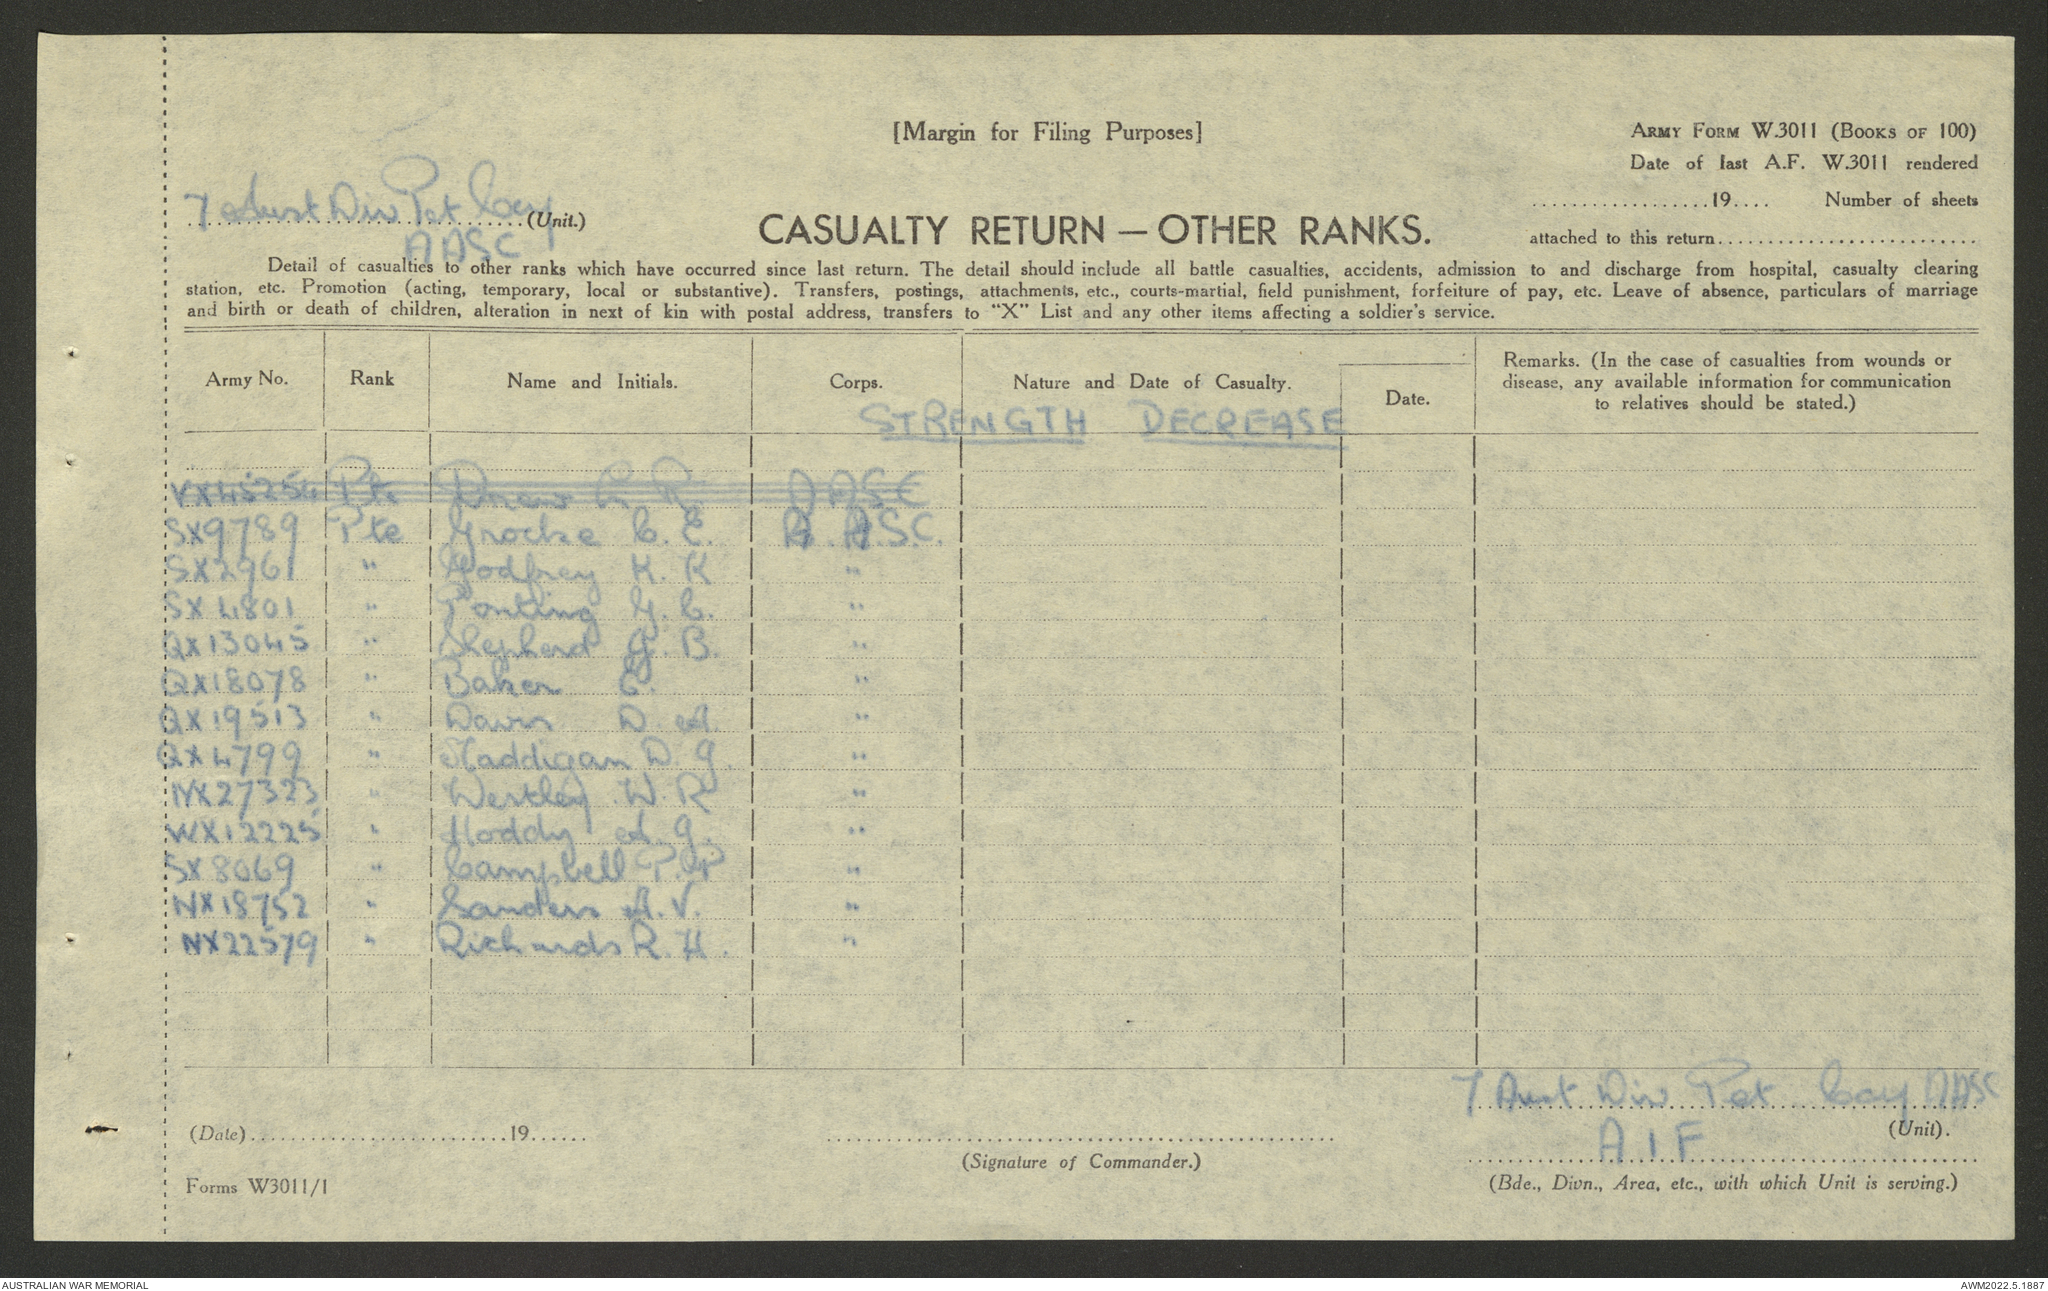 [Margin for Filing Purposes]
ARMY FORM W.3011 (BOOKS OF 100)
Date of last A.F. W.3011 rendered
..................19.... Number of sheets
attached to this return..........................
7 Aust Div Pet Coy (Unit.)
AASC
CASUALTY RETURN — OTHER RANKS.
Detail of casualties to other ranks which have occurred since last return. The detail should include all battle casualties, accidents, admission to and discharge from hospital, casualty clearing
station, etc. Promotion (acting, temporary, local or substantive). Transfers, postings, attachments, etc., courts-martial, field punishment, forfeiture of pay, etc. Leave of absence, particulars of marriage
and birth or death of children, alteration in next of kin with postal address, transfers to "X" List and any other items affecting a soldier's service.
Army No. Rank Name and Initials. Corps. Nature and Date of Casualty. Date. Remarks. (In the case of casualties from wounds or
disease, any available information for communication
to relatives should be stated.)
STRENGTH DECREASE
VX45254 Pte Drew L R AASC
SX9789 Pte Grocke C. E. A.A.S.C.
SX2961 " Godfrey K. K "
SX4801 " Ponting G. C. "
QX13045 " Shepherd G. B. "
QX18078 " Baker E. "
QX19513 " Davis D. A. "
QX4799 " Maddigan D. J. "
NX27323 " Westley W. R "
WX12225 " Hoddy A. J. "
SX8069 " Campbell P. P "
NX18752 " Sanders A. V. "
NX22579 " Richards R. H. "
7 Aust Div Pet Coy AASC
(Date)..........................19...... (Unit).
AIF
(Signature of Commander.)
Forms W3011/1 (Bde., Divn., Area, etc., with which Unit is serving.)
AUSTRALIAN WAR MEMORIAL AWM2022.5.1887